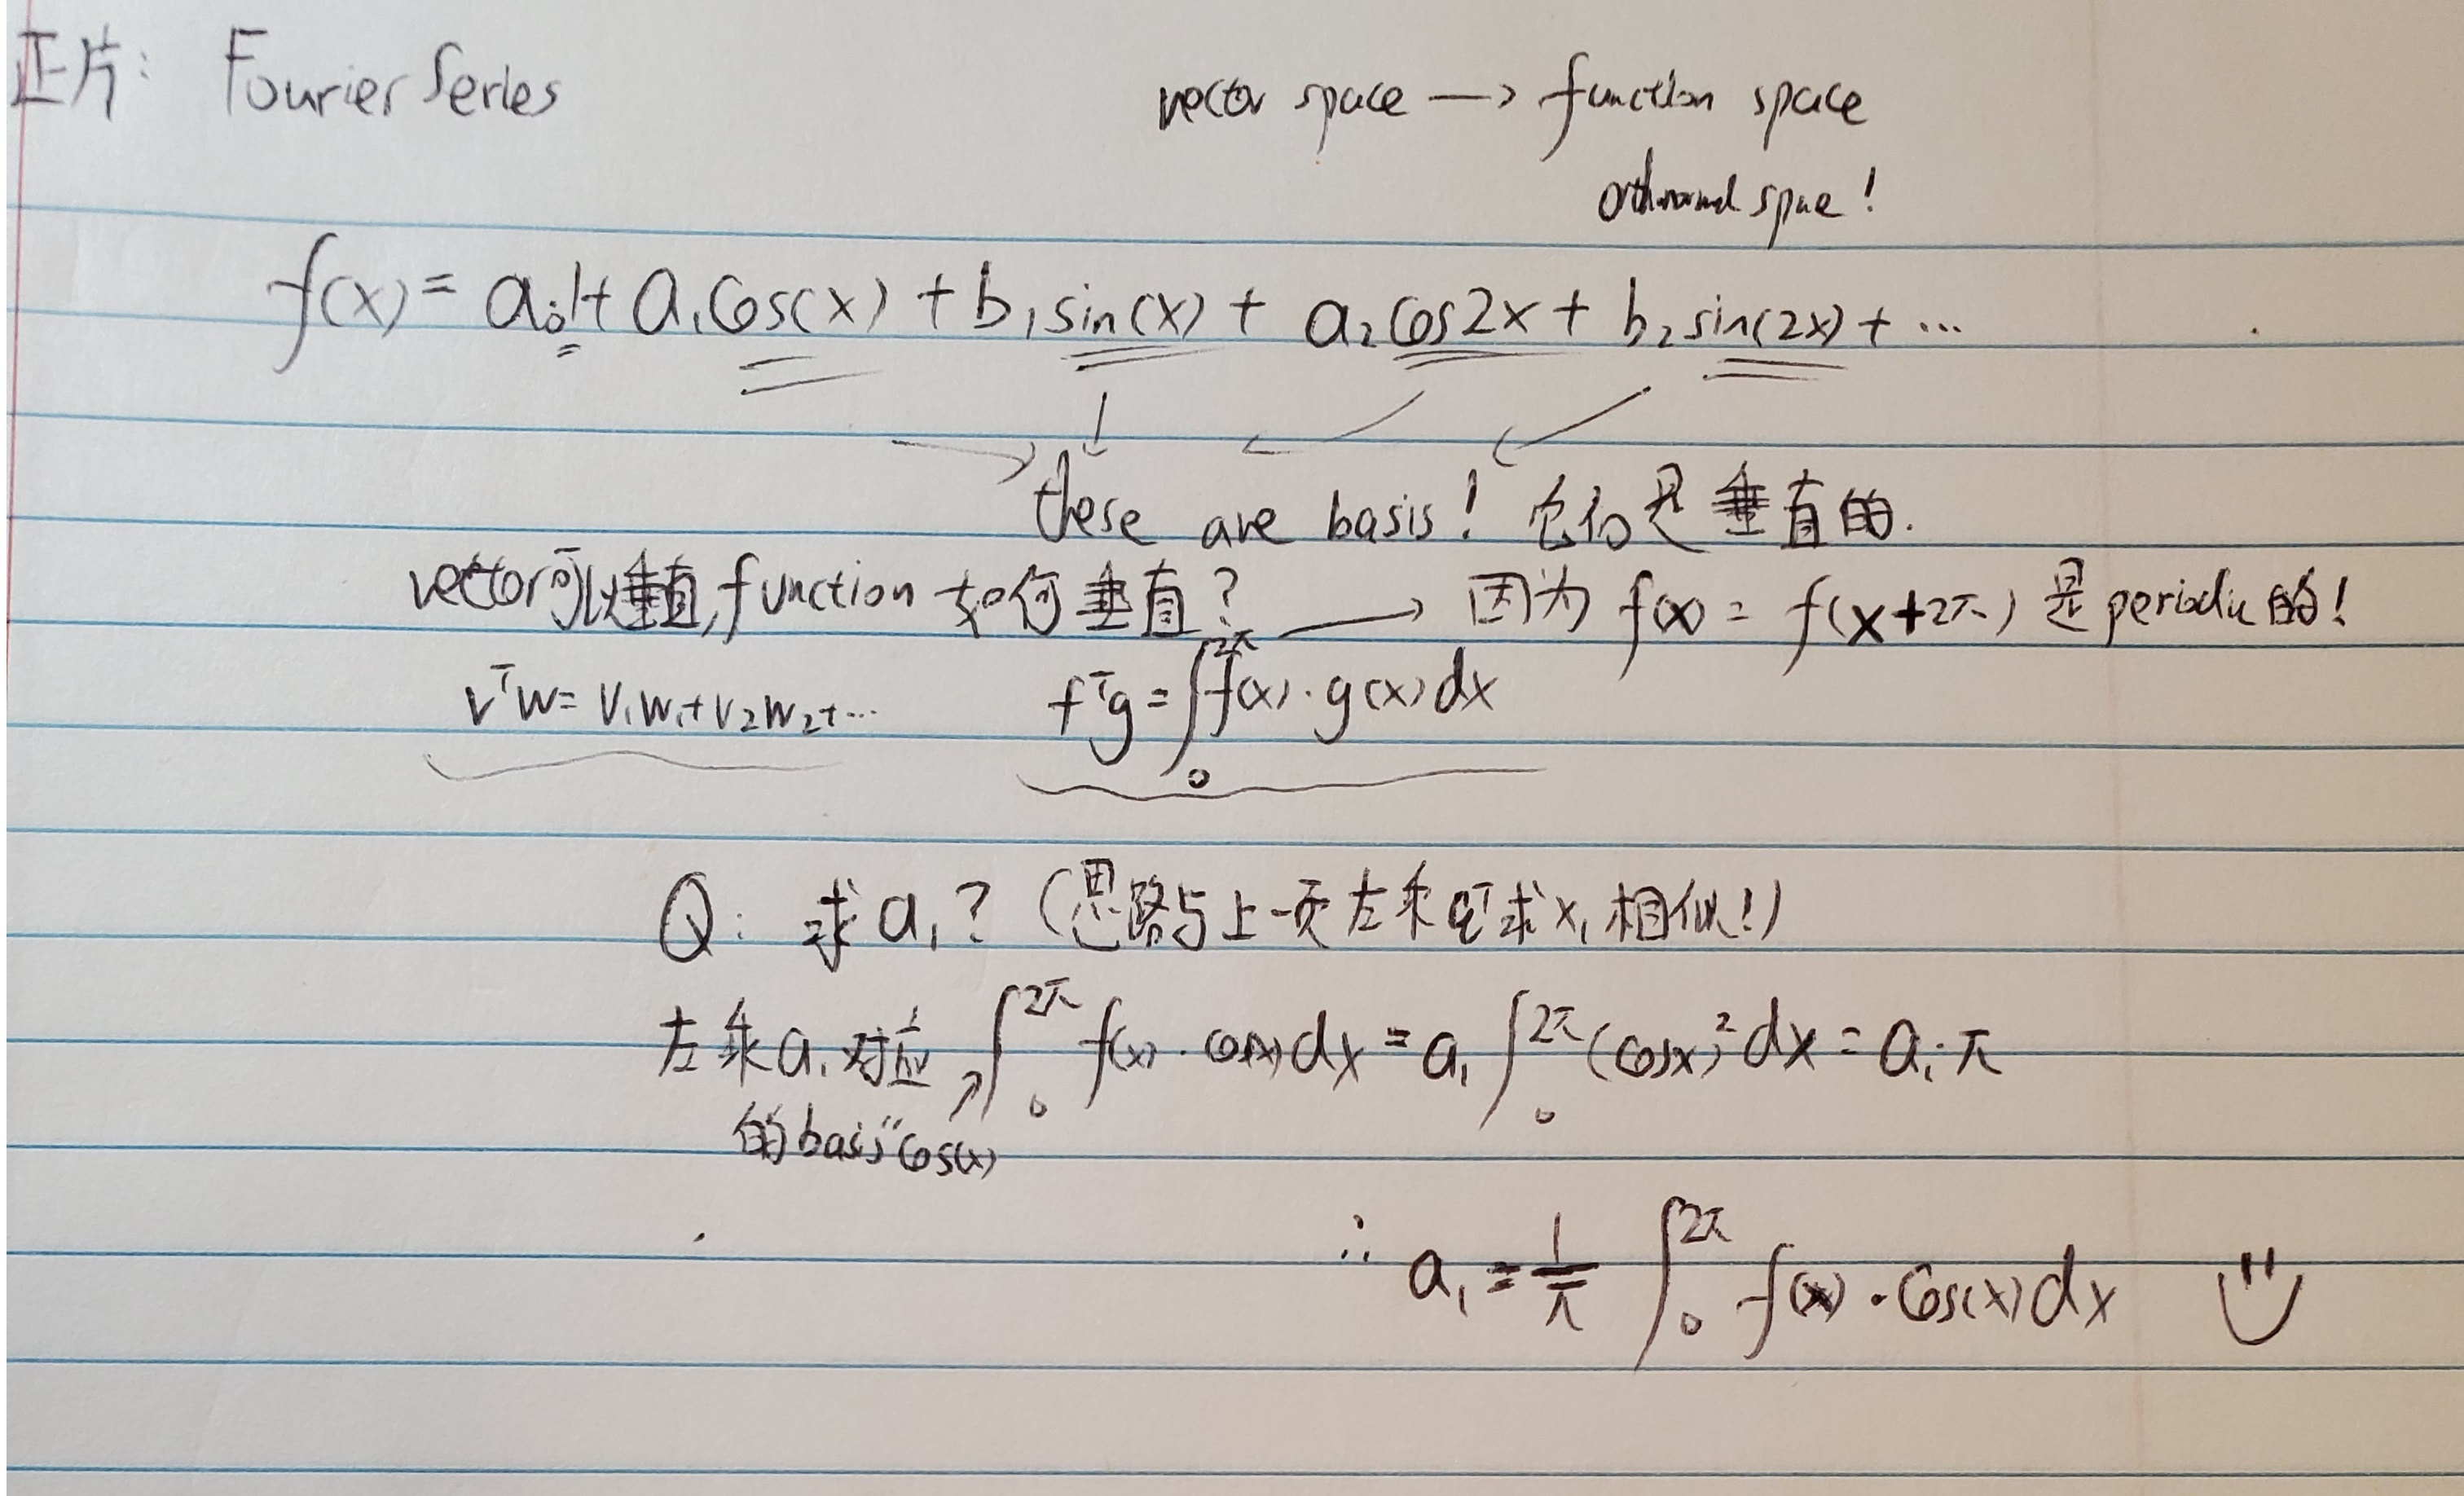 正片: Fourier Series
vector space → function space
orthonormal space!
f(x) = a₀·1 + a₁cos(x) + b₁sin(x) + a₂cos2x + b₂sin(2x) + ...
these are basis! 它们是垂直的.
vector可以垂直, function 如何垂直? → 因为 f(x) = f(x+2π) 是periodic的!
vᵀw = v₁w₁+v₂w₂+... fᵀg = ∫₀^2π f(x)·g(x)dx
Q: 求a₁? (思路与上一页左乘q₁ᵀ求x₁相似!)
左乘a₁对应 ∫₀^2π f(x)·cos(x)dx = a₁∫₀^2π (cosx)²dx = a₁·π
的basis"cos(x)
∴ a₁ = 1/π ∫₀^2π f(x)·cos(x)dx